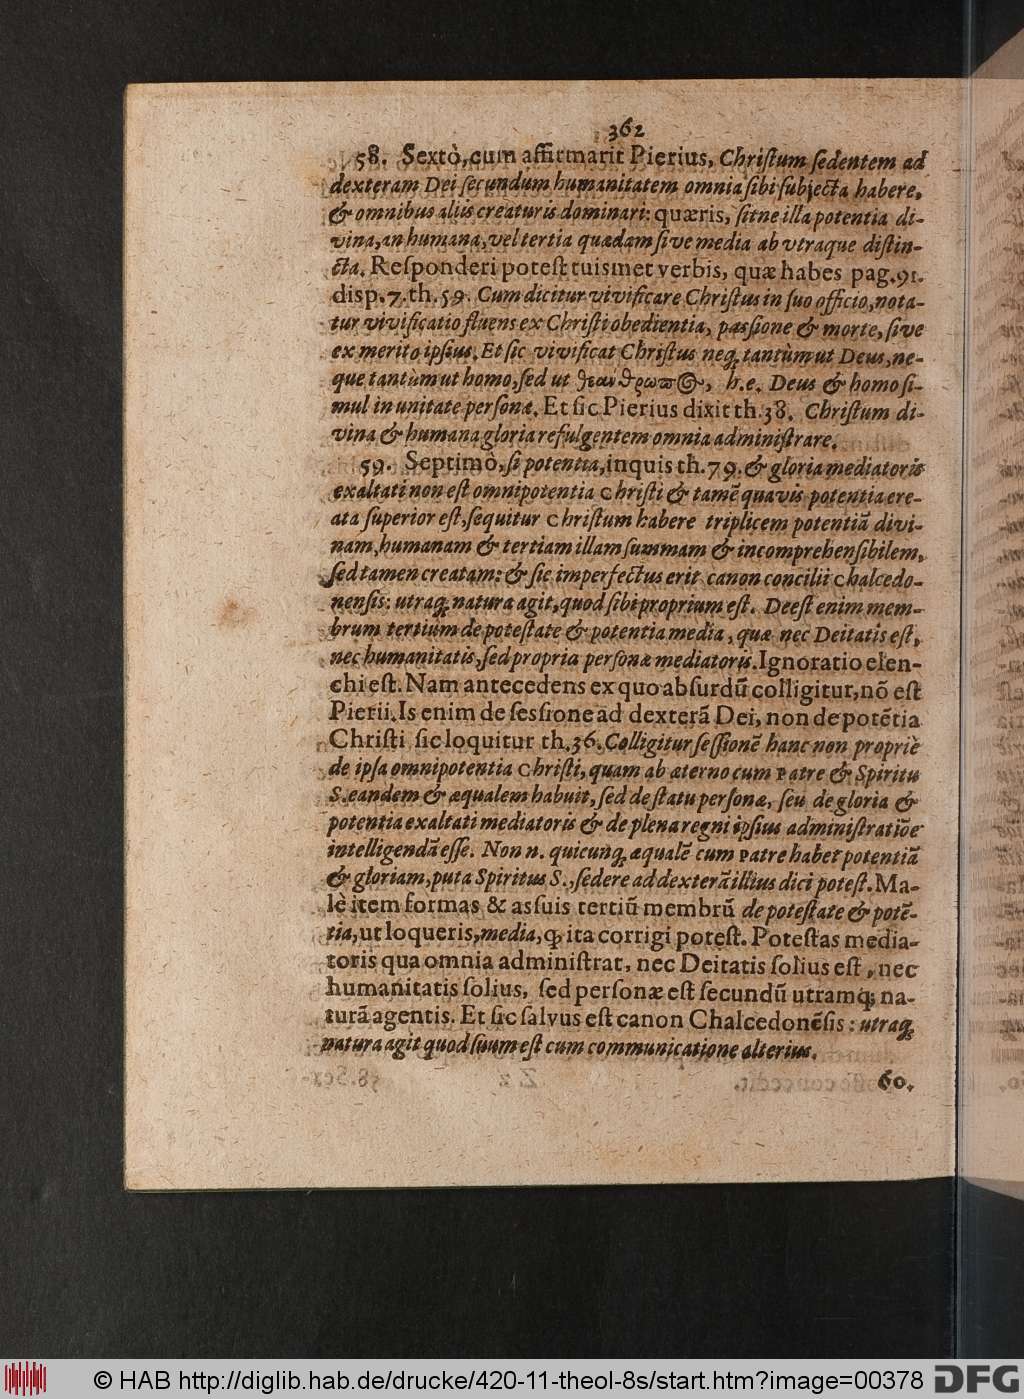 362
58. Sextò, cum affirmarit Pierius, Chriſtum ſedentem ad
dexteram Dei ſecundum humanitatem omnia ſibi ſubjecta habere,
& omnibus aliis creaturis dominari: quæris, ſitne illa potentia di-
vina, an humana, vel tertia quædam ſive media ab vtraque diſtin-
cta. Reſponderi poteſt tuismet verbis, quæ habes pag. 91.
disp. 7. th. 59. Cum dicitur vivificare Chriſtus in ſuo officio, nota-
tur vivificatio fluens ex Chriſti obedientia, paſsione & morte, ſive
ex merito ipſius. Et ſic vivificat Chriſtus neq; tantùm ut Deus, ne-
que tantùm ut homo, ſed ut θεανθρωπος, h.e. Deus & homo ſi-
mul in unitate perſonæ. Et ſic Pierius dixit th. 38. Chriſtum di-
vina & humana gloria refulgentem omnia adminiſtrare.
59. Septimò, ſi potentia, inquis th. 79. & gloria mediatoris
exaltati non eſt omnipotentia Chriſti & tamē quavis potentia cre-
ata ſuperior eſt, ſequitur Chriſtum habere triplicem potentiā divi-
nam, humanam & tertiam illam ſummam & incomprehenſibilem,
ſed tamen creatam: & ſic imperfectus erit canon concilii Chalcedo-
nenſis: utraq; natura agit, quod ſibi proprium eſt. Deeſt enim mem-
brum tertium de poteſtate & potentia media, quæ nec Deitatis eſt,
nec humanitatis, ſed propria perſonæ mediatoris. Ignoratio elen-
chi eſt. Nam antecedens ex quo abſurdū colligitur, nō eſt
Pierii. Is enim de ſeſsione ad dexterā Dei, non de potētia
Chriſti ſic loquitur th. 36. Colligitur ſeſſionē hanc non propriè
de ipſa omnipotentia Chriſti, quam ab æterno cum Patre & Spiritu
S. eandem & æqualem habuit, ſed de ſtatu perſonæ, ſeu de gloria &
potentia exaltati mediatoris & de plena regni ipſius adminiſtratiōe
intelligendā eſſe. Non n. quicunq; æqualē cum Patre habet potentiā
& gloriam, puta Spiritus S., ſedere ad dexterā illius dici poteſt. Ma-
lè item formas & aſſuis tertiū membrū de poteſtate & potē-
tia, ut loqueris, media, q; ita corrigi poteſt. Poteſtas media-
toris qua omnia adminiſtrat, nec Deitatis ſolius eſt, nec
humanitatis ſolius, ſed perſonæ eſt ſecundū utramq; na-
turā agentis. Et ſic ſalvus eſt canon Chalcedonēſis: utraq;
natura agit quod ſuum eſt cum communicatione alterius.
60.
© HAB http://diglib.hab.de/drucke/420-11-theol-8s/start.htm?image=00378
DFG